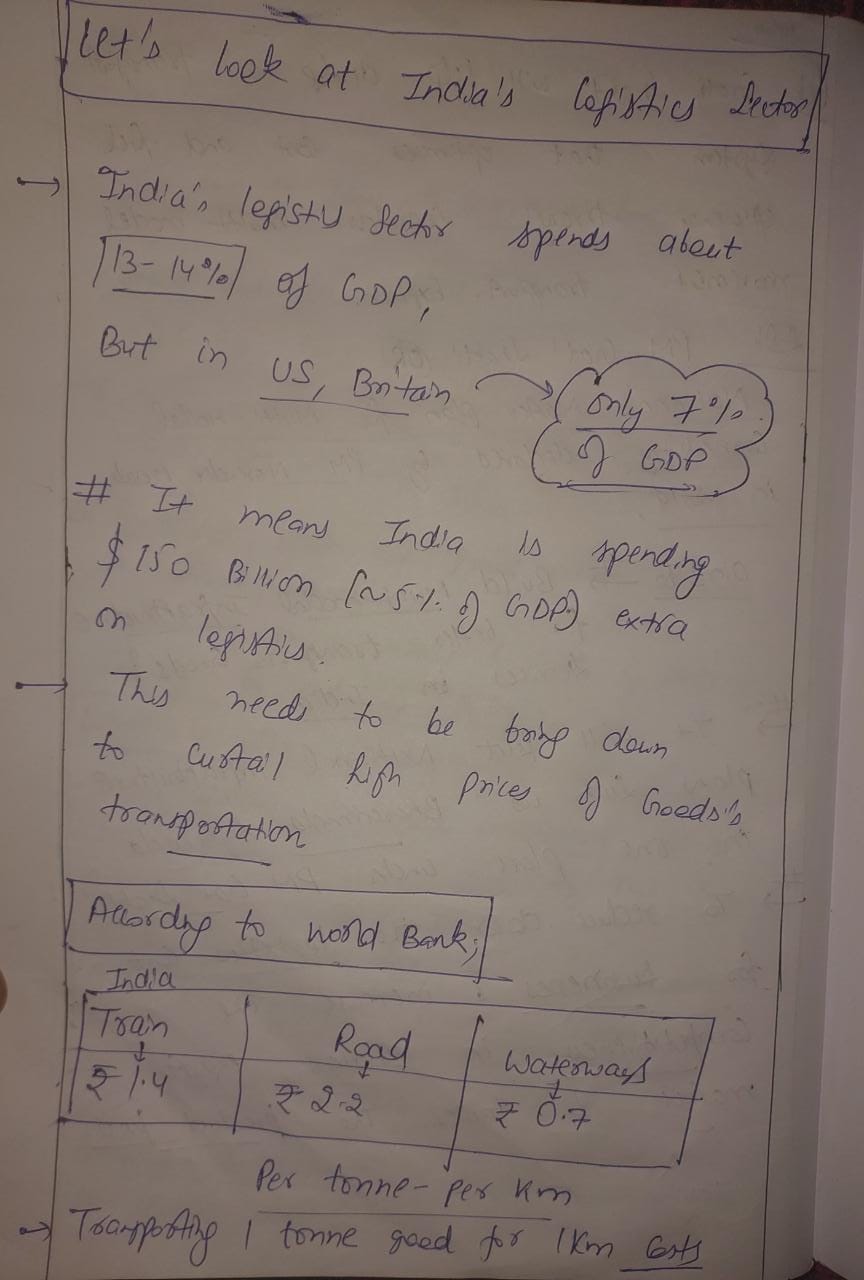 Let's look at India's logistics Sector
→ India's logistu Sector spends about
13-14% of GDP,
But in US, Britain → only 7%
of GDP
# It means India is spending
$150 Billion (~5% of GDP) extra
on logistics.
→ This needs to be bring down
to curtail high prices of Goods's
transportation
According to world Bank;
India
Train Road Waterways
↓ ↓ ↓
₹ 1.4 ₹ 2.2 ₹ 0.7
Per tonne - per km
→ Transporting 1 tonne good for 1 km costs